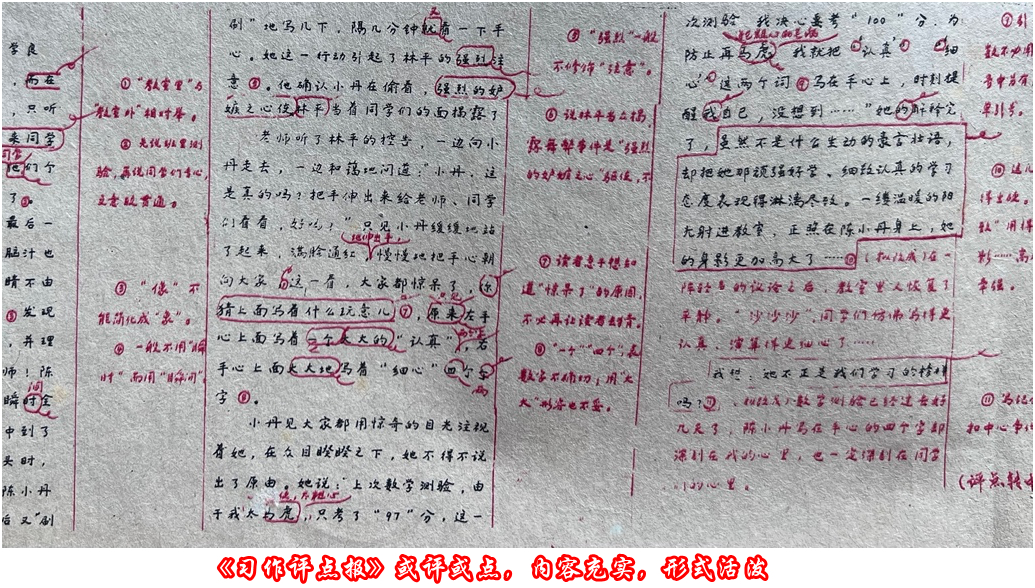 学良
，而在
，只听
来同学
同学
他们个
了⑧。
最后一
脑汁也
睛不由
③发现
，并理
师！陈
间
瞬时全
中到了
头时，
陈小丹
后又“刷
①“教室里”与
“教室外”相对举。
②先说班里测
验，再说同学们专心，
文意较贯通。
③“像”不
能简化成“象”。
④一般不用“瞬
时”而用“瞬间”。
刷”地写几下，隔几分钟就看一下手
又
心。她这一行动引起了林平的强烈注
意⑤。他确认小丹在偷看，强烈的妒
嫉之心使林平当着同学们的面揭露了
老师听了林平的控告，一边向小
丹走去，一边和蔼地问道：“小丹，这
是真的吗？把手伸出来给老师、同学
们看看，好吗？”只见小丹缓缓地站
她伸出手，
了起来，满脸通红，慢慢地把手心朝
向大家。这一看，大家都惊呆了，你
猜上面写着什么玩意儿⑦，原来左手
心上面写着一个大大的“认真”，右
手心上面大大地写着“细心”四个字
字⑧。
小丹见大家都用惊奇的目光注视
着她，在众目睽睽之下，她不得不说
出了原由。她说：“上次数学测验，由
于我太马虎，只考了“97”分，这一
⑤“强烈”一般
不修饰“注意”。
⑥说林平当众揭
露舞弊事件是“强烈
的妒嫉之心”驱使，不
⑦读者急于想知
道“惊呆了”的原因，
不必再让读者去猜。
⑧“一个”“四个”表
数字不确切；用“大
大”形容也不妥。
次测验，我决心要考“100”分，为
防止再马虎，我就把“认真”、“细
心”这两个词写在手心上，时刻提
醒我自己，没想到……”她的解释完
了，虽然不是什么生动的豪言壮语，
却把她那顽强好学、细致认真的学习
态度表现得淋漓尽致。一缕温暖的阳
光射进教室，正照在陈小丹身上，她
的身影更加高大了……⑩（拟改成）在一
阵轻声的议论之后，教室里又恢复了
平静。“沙沙沙”，同学们仿佛写得更
认真，演算得更细心了……
我想：她不正是我们学习的榜样
吗？⑪ 拟改成）数学测验已经过去好
几天了，陈小丹写在手心的四个字却
深刻在我的心里，也一定深刻在同学
们的心里。
⑨引
数不必用
号中有引
单引号。
⑩这儿
得生硬。
数”用得
影……高
牵强。
⑪写结
扣中心事件
（评点转中
《习作评点报》或评或点，内容充实，形式活泼